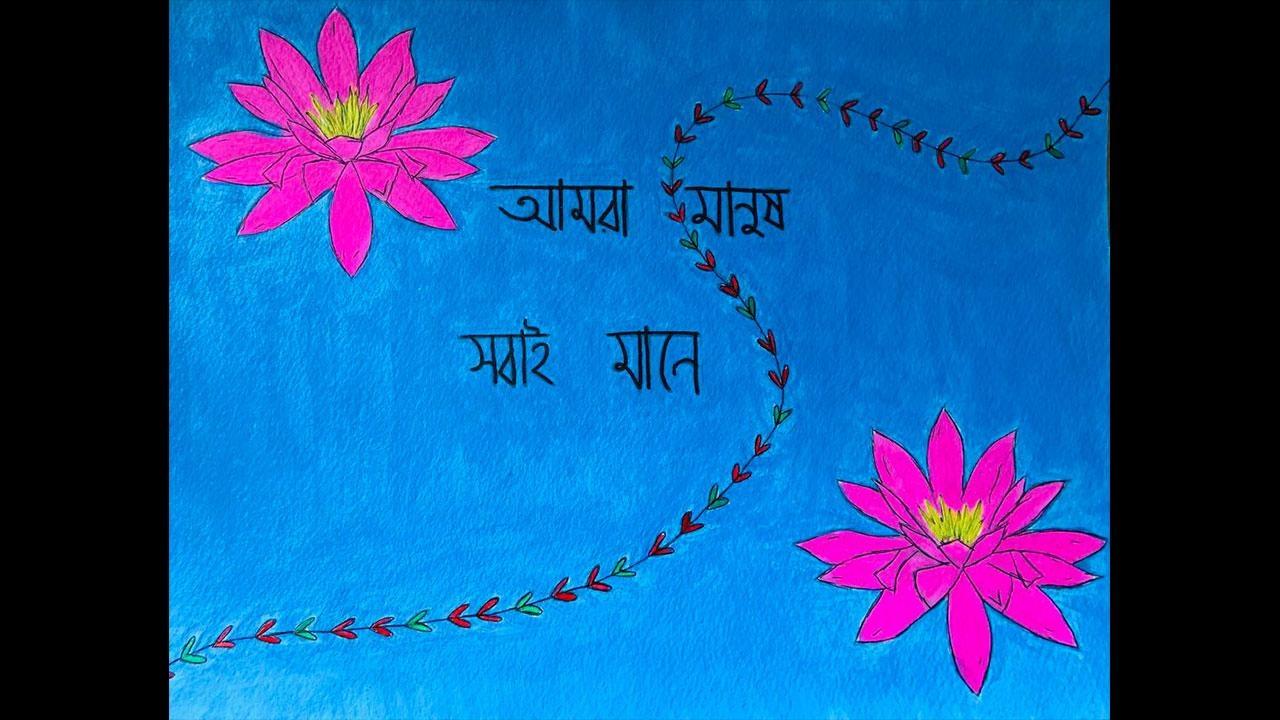 আমরা মানুষ
সবাই মানে